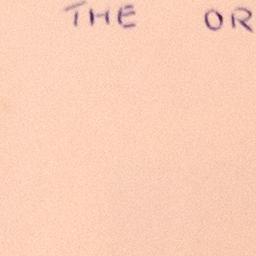 THE OR